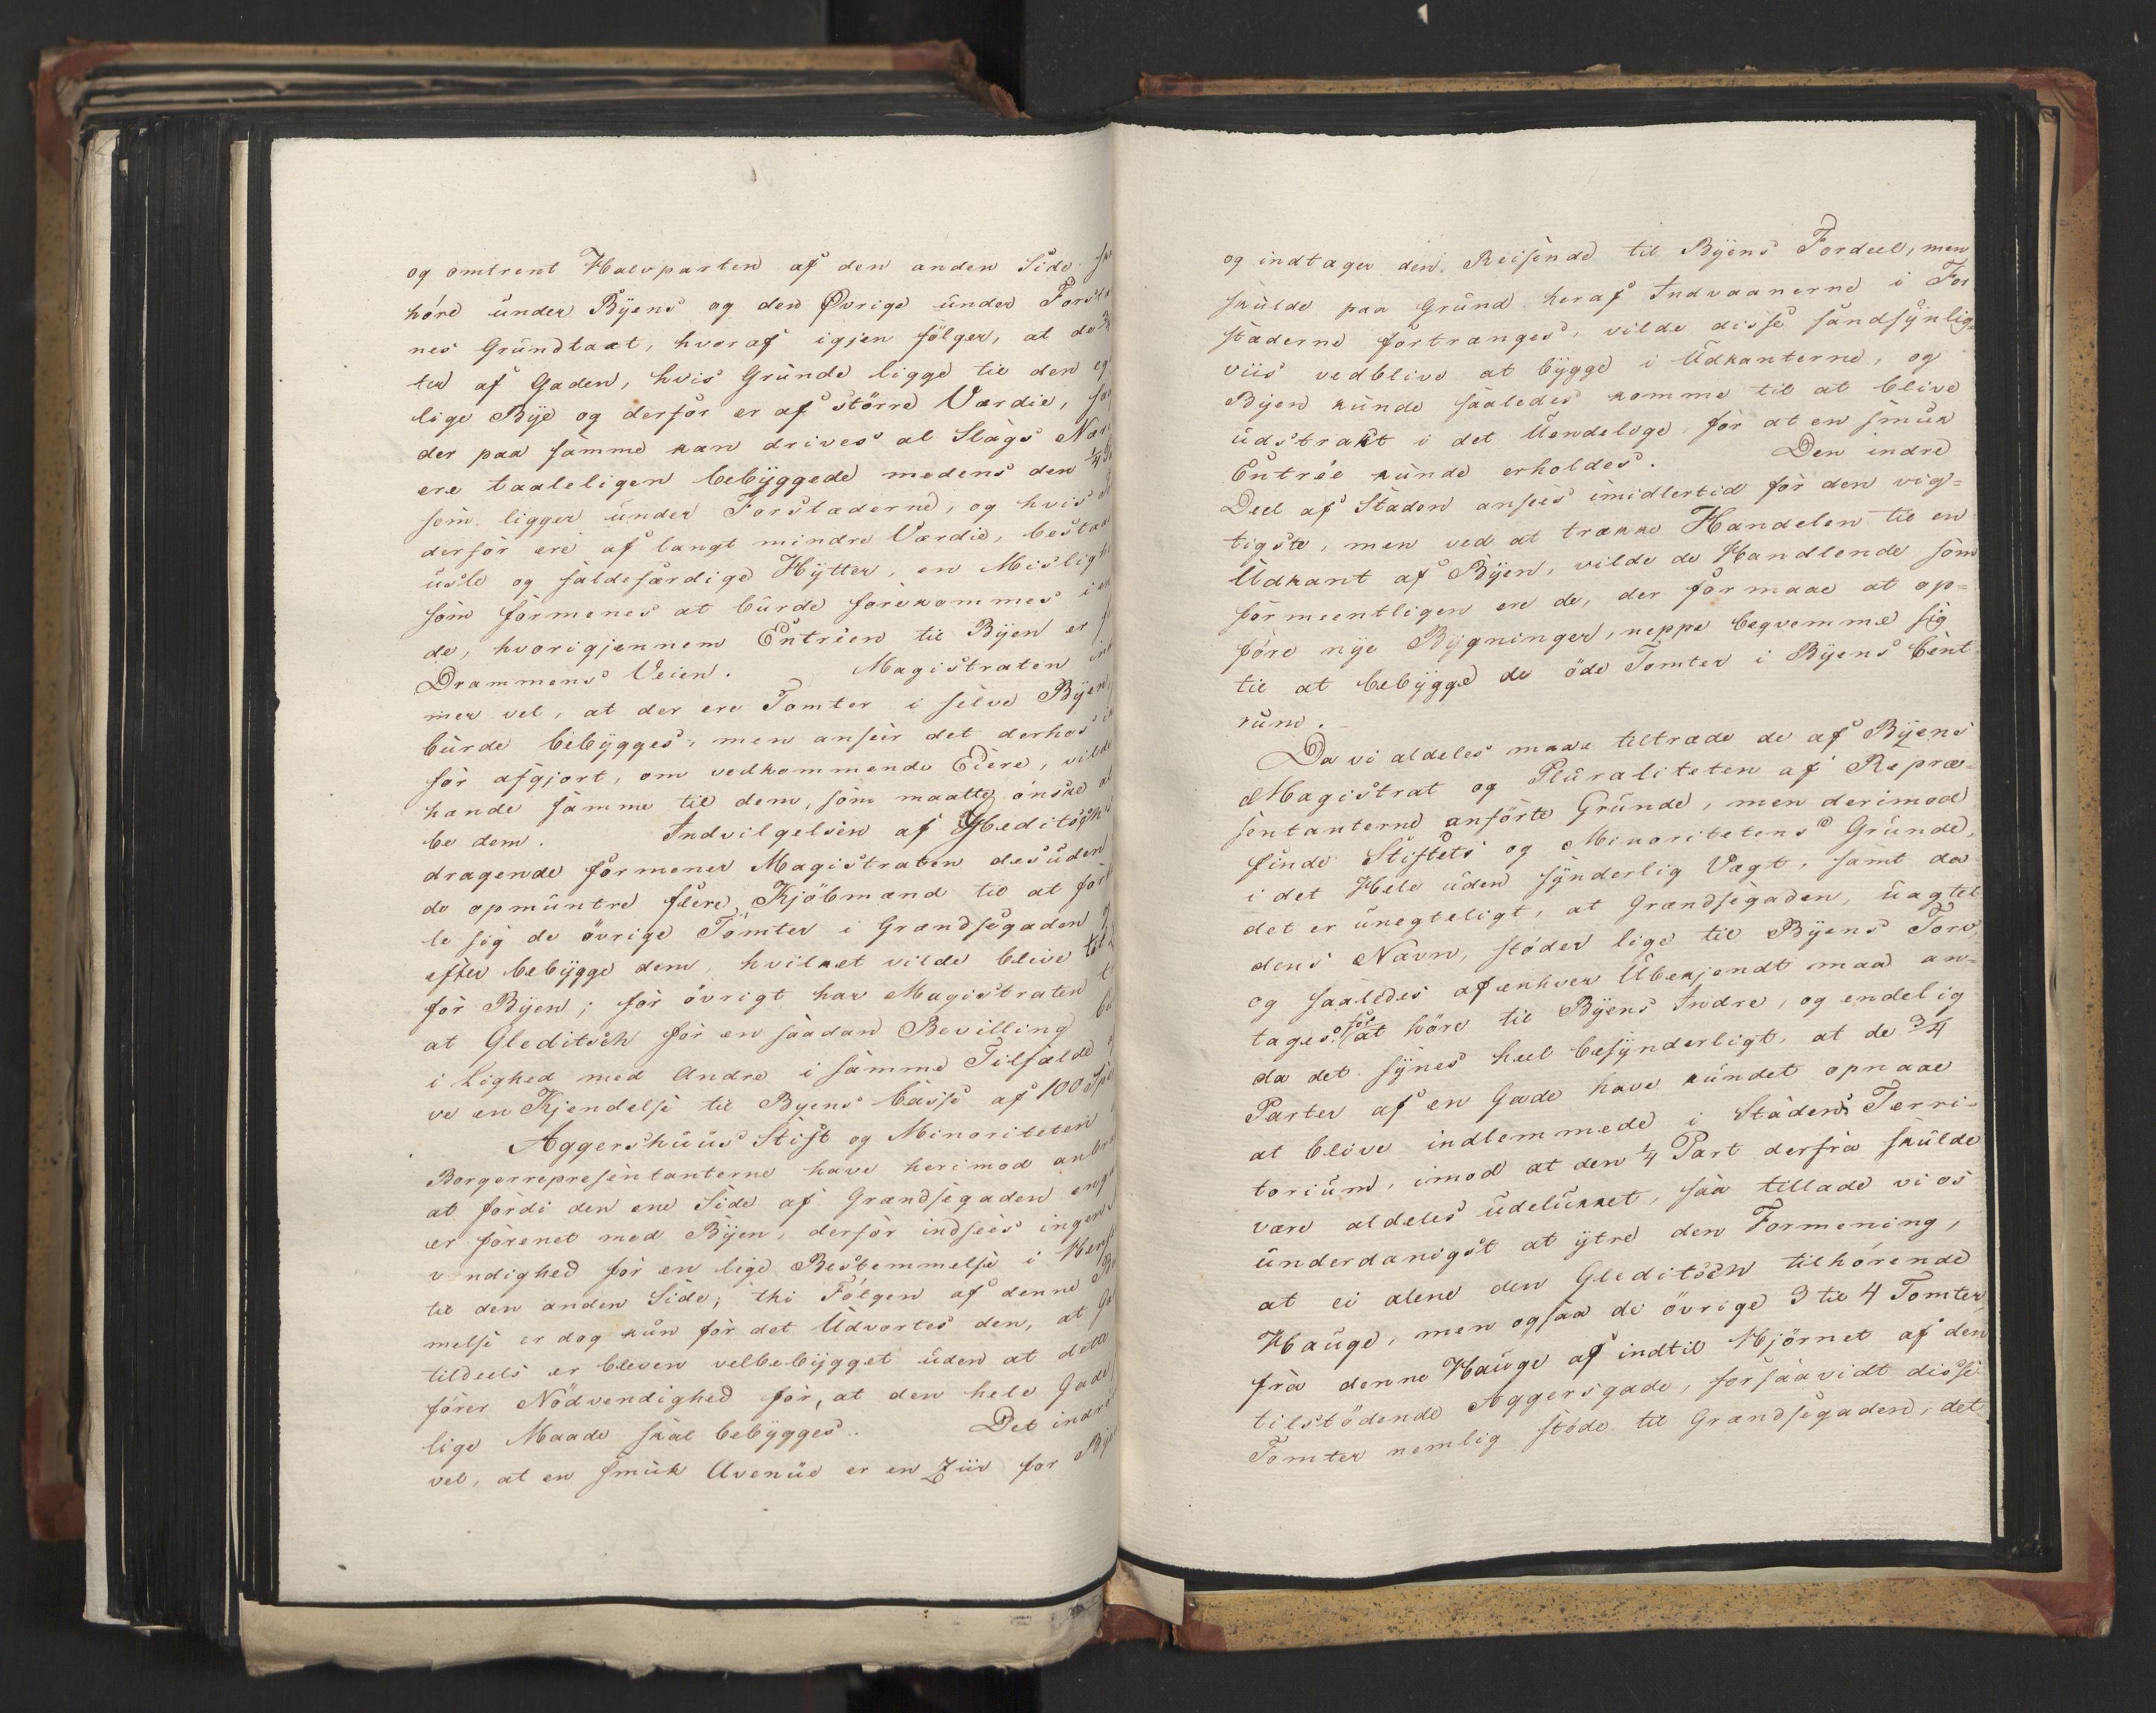 og omtrent Halvparten af den anden Side
höre under Byens og den Øvrige under Forst
nes Grundtaxt, hvoraf igjen fölger, at de 3/4
ter af Gaden, hvis Grunde ligge til den eg
lige Bye og derfor er af större Værdie,
der paa samme kan drives al Slags Nær
ere taaleligen bebyggede medens den 1/4
som ligger under Forstæderne, og hvis
derfor ere af langt mindre Værdie, bestaae
usle og faldefærdige Hytter, en Mislighe
som formenes at burde forekommes i en
de, hvorigjennem Entréen til Byen er
Drammens Veien. Magistraten
mer vel, at der ere Tomter i selve Byen,
burde bebygges, men anseer det derhos
for afgjort, om vedkommende Eiere, vilde
hande samme til dem, som maatte önske at
be dem. Indvilgelsen af Gleditsch's
dragende formener Magistraten desuden
de opmuntre flere Kjöbmænd til at for
le sig de övrige Tomter i Grændsegaden
efter bebygge dem, hvilket vilde blive til
for Byen; for övrigt har Magistraten
at Gleditsch for en saadan Bevilling
i Lighed med Andre i samme Tilfælde
ve en Kjendelse til Byens Casse af 100 Spd
Aggershuus Stift og Minoriteten
Borgerrepresentanterne have herimod anbr
at fordi den ene Side af Grændsegaden eng
er forenet med Byen, derfor indsees ingen
vendighed for en lige Bestemmelse i Hens
til den anden Side; thi Fölgen af denne Be
melse er dog kun for det Udvortes den, at Ga
tildeels er bleven velbebygget uden at dette
förer Nödvendighed for, at den hele Gade
lige Maade skal bebygges. Det indrö
vel, at en smuk Avenüe er en Ziir for By
og indtager den Reisende til Byens Fordeel, men
skulde paa Grund heraf Indvaanerne i For
stæderne fortrænges, vilde disse sandsynlig
viis vedblive at bygge i Udkanterne, og
Byen kunde saaledes komme til at blive
udstrakt i det Uendelige, for at en smuk
Entrée kunde erholdes. Den indre
Deel af Staden ansees imidlertid for den vig=
tigste, men ved at trække Handelen til en
Udkant af Byen, vilde de Handlende som
formeentligen ere de, der formaae at op=
före nye Bygninger, neppe beqvemme sig
til at bebygge de öde Tomter i Byens Cent
rum.
Da vi aldeles maae tiltræde de af Byens
Magistrat og Pluraliteten af Repræ=
sentanterne anförte Grunde, men derimod
finde Stiftets og Minoritetens Grunde,
i det Hele uden synderlig Vægt, samt da
det er unegteligt, at Grændsegaden, uagtet
dens Navn, stöder lige til Byens Torv,
og saaledes af enhver Ubekjendt maa an=
tages for at höre til Byens Indre, og endelig
da det synes heel besynderligt, at de 3/4
Parter af en Gade have kundet opnaae
at blive indlemmede i Stadens Terri=
torium, imod at den 1/4 Part derfra skulde
være aldeles udelukket, saa tillade vi os
underdanigst at ytre den Formening,
at ei alene den Gleditsch tilhörende
Hauge, men ogsaa de övrige 3 til 4 Tomter
fra denne Hauge af indtil Hjörnet af den
tilstödende Aggersgade, forsaavidt disse
Tomter nemlig stöde til Grændsegaden, det